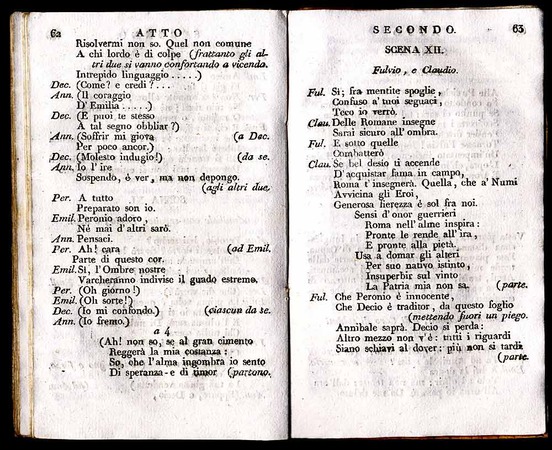 62 ATTO
Risolvermi non so. Quel non comune
A chi lordo è di colpe (frattanto gli al-
tri due si vanno confortando a vicenda.
Intrepido linguaggio .....)
Dec. (Come? e credi?...
Ann. (Il coraggio
D' Emilia .....)
Dec. (E puoi te stesso
A tal segno obbliar?)
Ann. (Soffrir mi giova (a Dec.
Per poco ancor.)
Dec. (Molesto indugio!) (da se.
Ann. Io l' ire
Sospendo, è ver, ma non depongo.
(agli altri due.
Per. A tutto
Preparato son io.
Emil. Peronio adoro,
Nè mai d'altri sarò.
Ann. Pensaci.
Per. Ah! cara (ad Emil.
Parte di questo cor.
Emil. Sì, l'Ombre nostre
Varcheranno indivise il guado estremo.
Per. (Oh giorno!)
Emil. (Oh sorte!)
Dec. (Io mi confondo.) (ciascun da se.
Ann. (Io fremo.)
a 4
(Ah! non so, se al gran cimento
Reggerà la mia costanza:
So, che l'alma ingombra io sento
Di speranza e di timor (partono.
SECONDO. 63
SCENA XII.
Fulvio, e Claudio.
Ful. Sì; fra mentite spoglie,
Confuso a' tuoi seguaci,
Teco io verrò.
Clau. Delle Romane insegne
Sarai sicuro all' ombra.
Ful. E sotto quelle
Combatterò
Clau. Se bel desio ti accende
D' acquistar fama in campo,
Roma t' insegnerà. Quella, che a' Numi
Avvicina gli Eroi,
Generosa fierezza è sol fra noi.
Sensi d' onor guerrieri
Roma nell' alme inspira:
Pronte le rende all' ira,
E pronte alla pietà.
Usa a domar gli alteri
Per suo nativo istinto,
Insuperbir sul vinto
La Patria mia non sa. (parte.
Ful. Che Peronio è innocente,
Che Decio è traditor, da questo foglio
(mettendo fuori un piego.
Annibale saprà. Decio si perda:
Altro mezzo non v' è: tutti i riguardi
Siano schiavi al dover: più non si tardi
(parte.